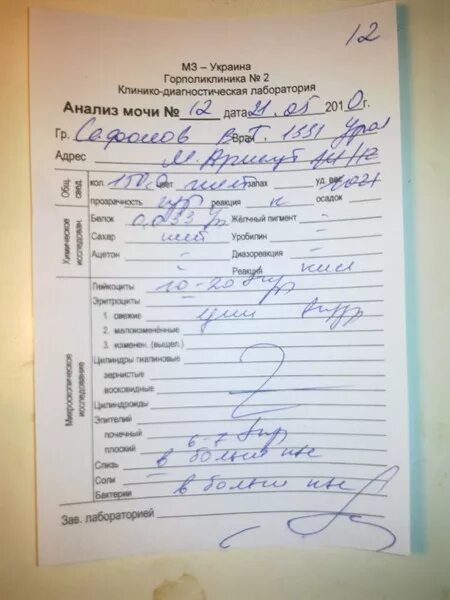 12
МЗ – Украина
Горполиклиника № 2
Клинико-диагностическая лаборатория
Анализ мочи № 12 дата 21.05 2010г.
Гр. Сафонов Врач
Адрес
Общ. свед.
кол. 150,0 цвет жел запах уд. вес 1021
прозрачность реакция к осадок
Химическое исследован.
Белок 0,033 Жёлчный пигмент –
Сахар нет Уробилин –
Ацетон - Диазореакция –
Реакция кисл
Микроскопическое исследование
Лейкоциты 10-20
Эритроциты
1. свежие
2. малоизменённые
3. изменен. (выщел.)
Цилиндры гиалиновые
зернистые
восковидные
Цилиндроиды
Эпителий
почечный
плоский 6-7
Слизь в больш
Соли
Бактерии в больш
Зав. лабораторией